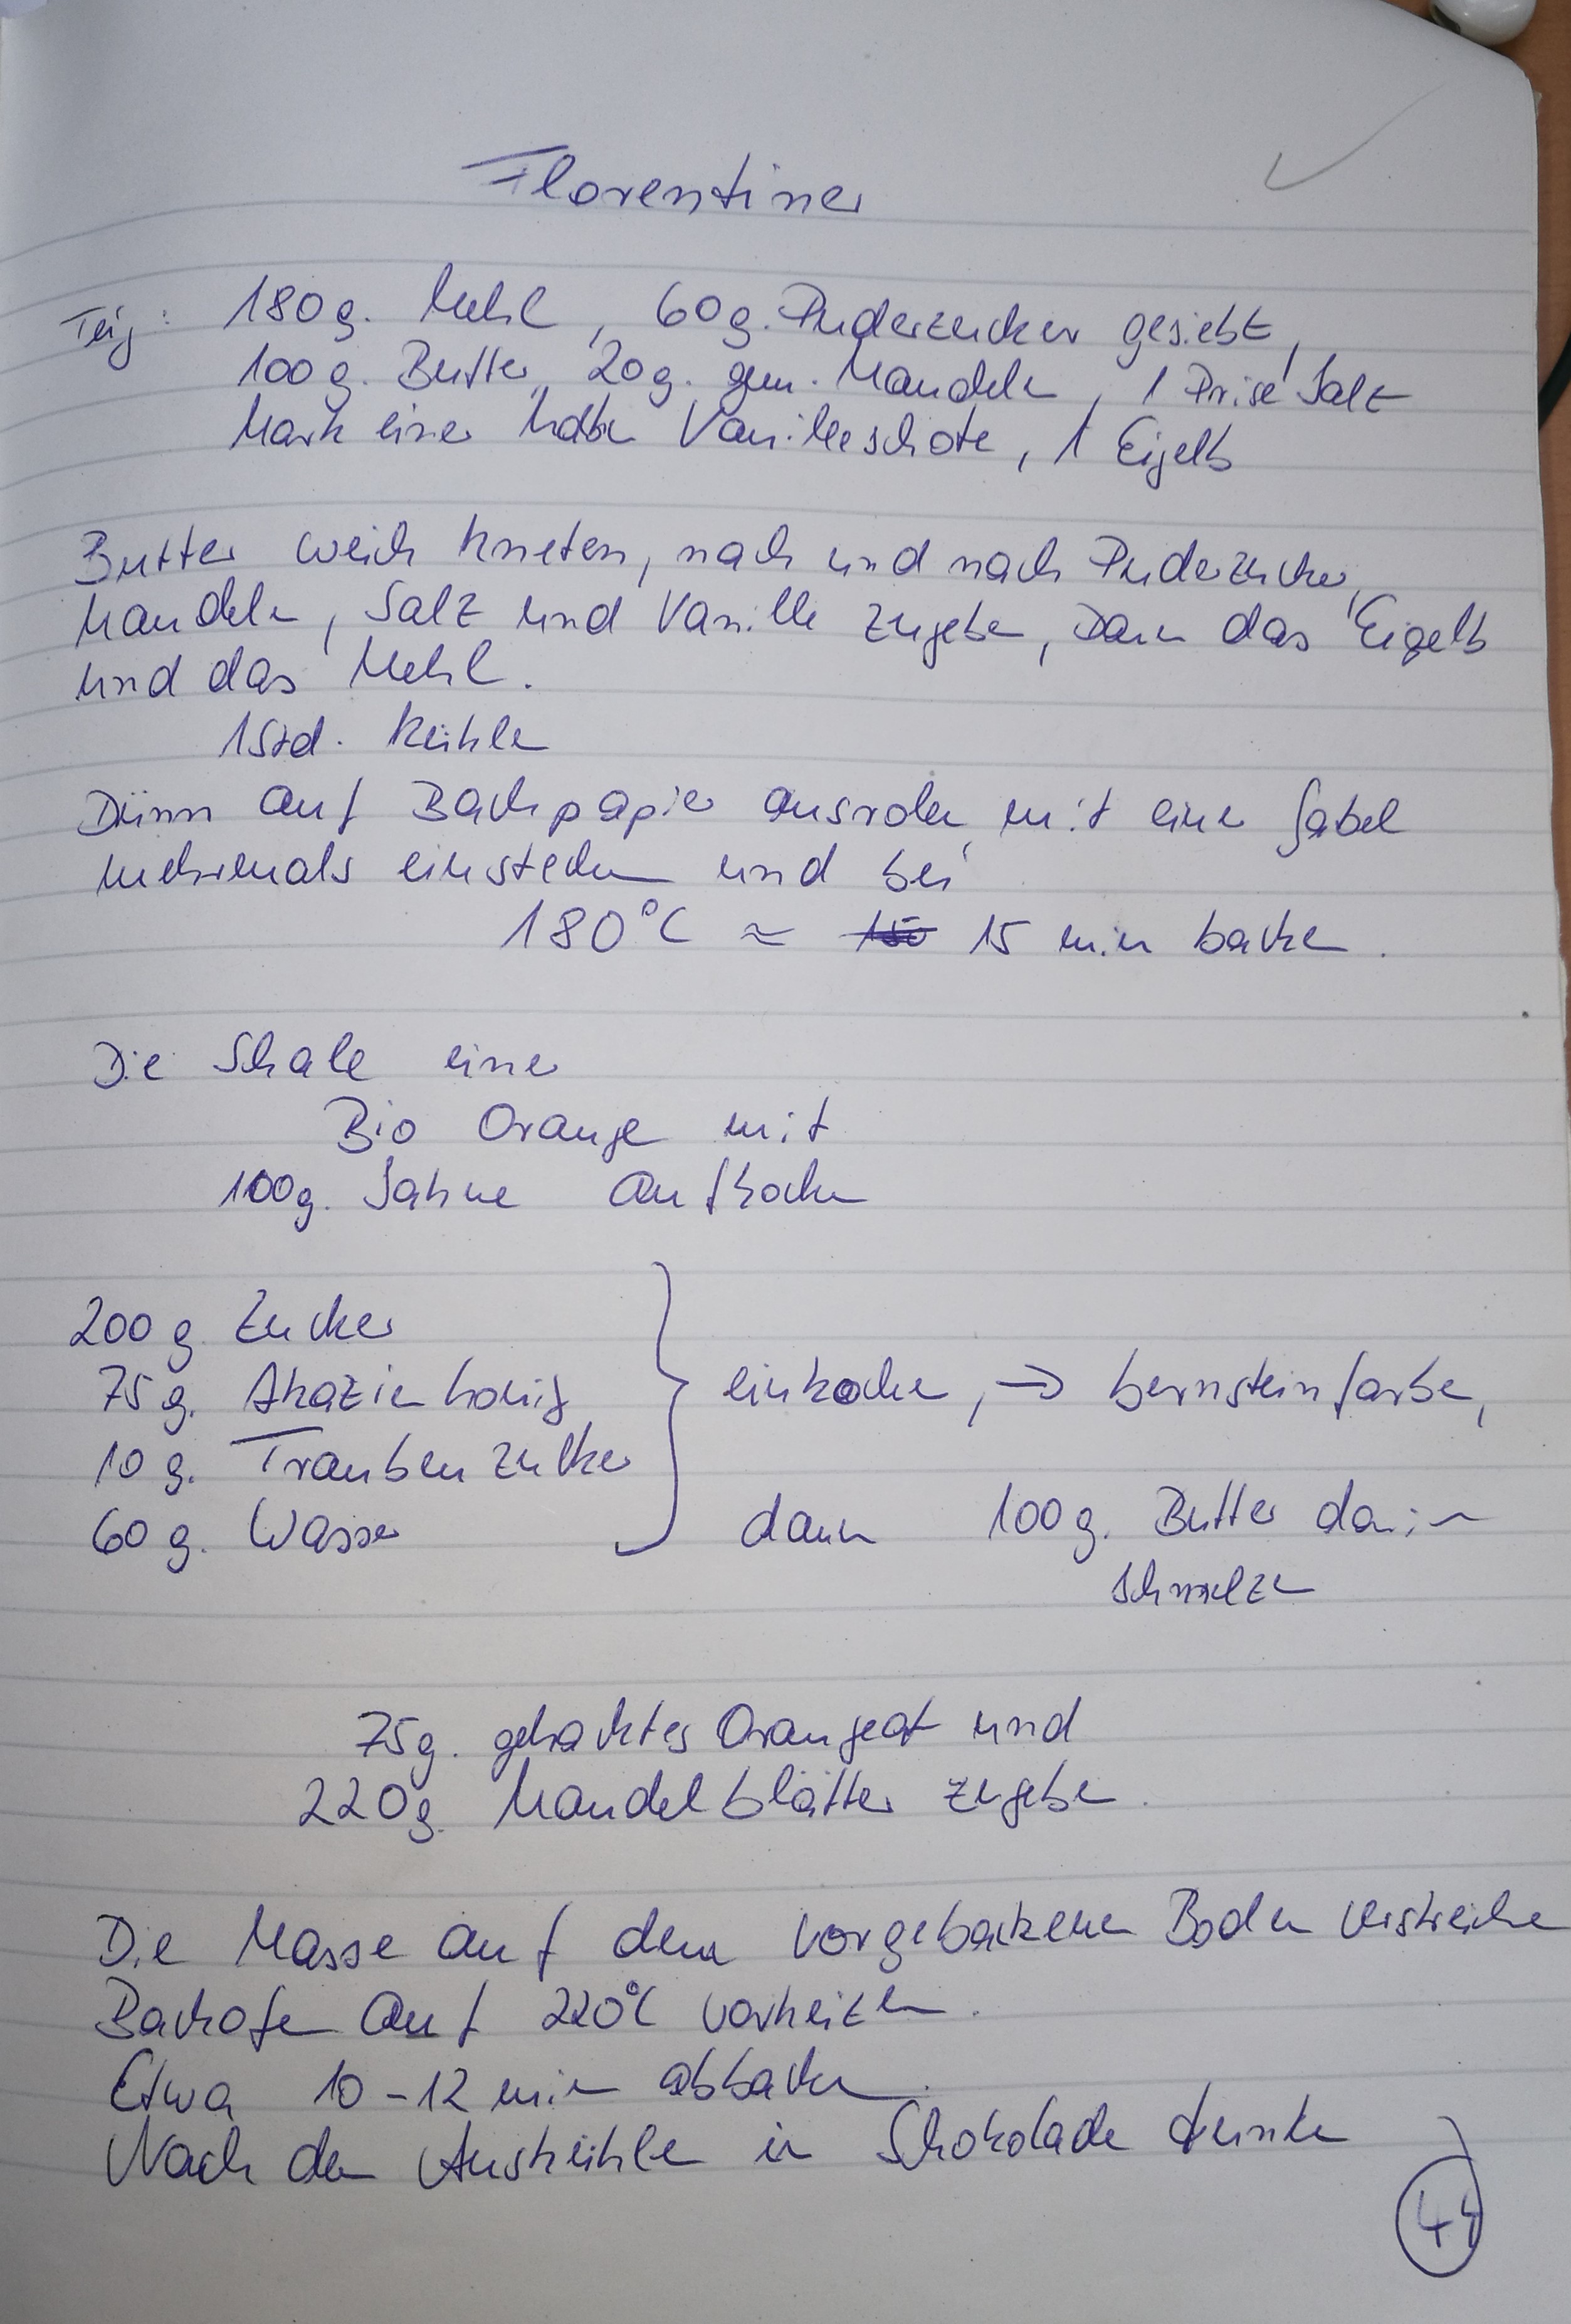 Florentiner
Teig: 180g. Mehl, 60g. Puderzucker gesiebt,
100g. Butter, 20g. gem. Mandeln, 1 Prise Salz
Mark einer halben Vanilleschote, 1 Eigelb
Butter weich kneten, nach und nach Puderzucker,
Mandeln, Salz und Vanille zugeben, Dann das Eigelb
und das Mehl.
1Std. kühlen
Dünn auf Backpapier ausrollen, mit einer Gabel
mehrmals einstechen und bei
180°C ≈ 15 min backen.
Die Schale einer
Bio Orange mit
100g. Sahne aufkochen
200 g. Zucker
75 g. Akazienhonig
10 g. Traubenzucker
60 g. Wasser
einkochen, → bernsteinfarben,
dann 100g. Butter darin
schmelzen
75g. gehacktes Orangeat und
220g. Mandelblätter zugeben.
Die Masse auf dem vorgebackenen Boden verstreichen
Backofen auf 220°C vorheizen.
Etwa 10-12 min abbacken.
Nach dem Auskühlen in Schokolade tunken
44